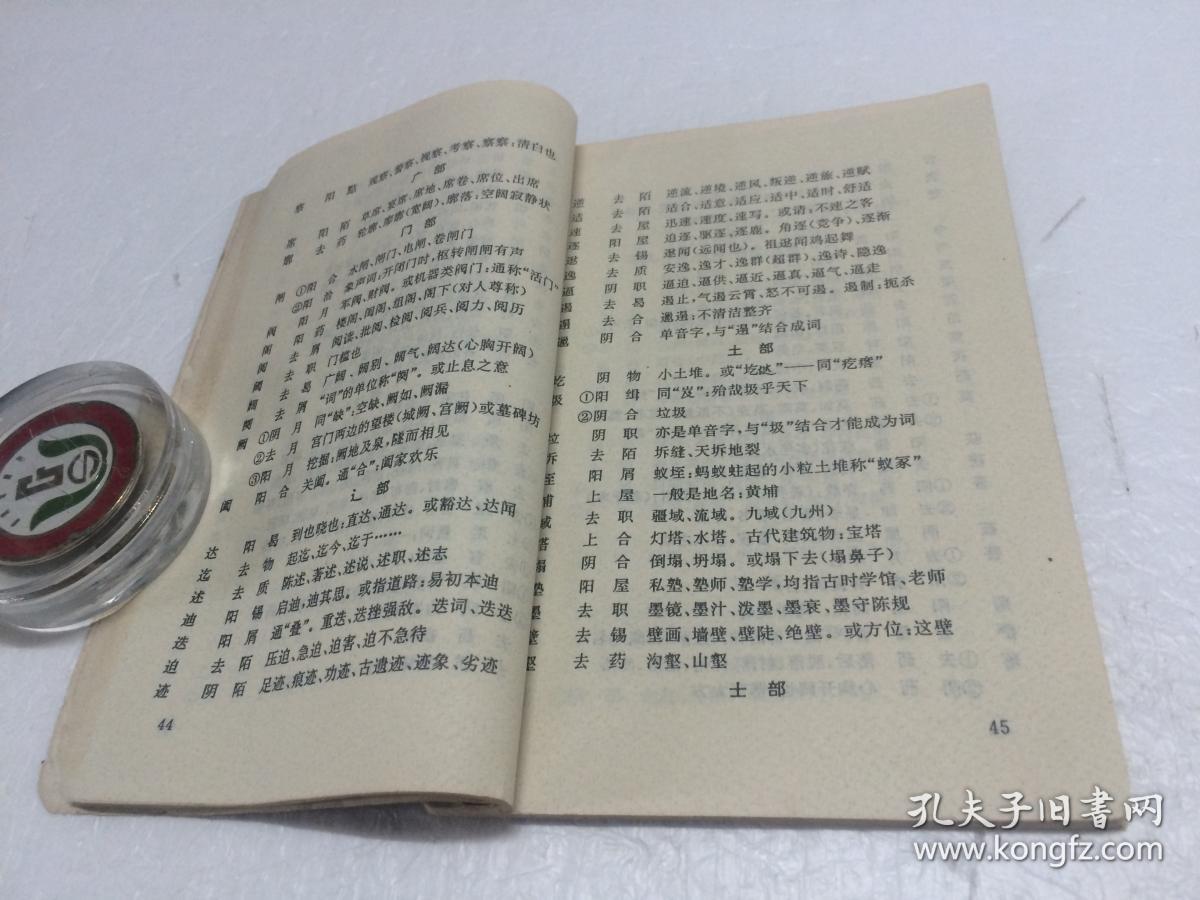 察 阳 黠 观察、警察、视察、考察、察察:清白也
广 部
席 阳 陌 草席、宴席、席地、席卷、席位、出席
廓 去 药 轮廓、廓廓(宽阔)、廓落:空阔寂静状
门 部
闸 ①阳 合 水闸、闸门、电闸、卷闸门
②阳 洽 象声词:开闭门时,枢转闸闸有声
阀 阳 月 军阀、财阀。或机器类阀门:通称“活门”
阁 阳 药 楼阁、闺阁、组阁、阁下(对人尊称)
阅 去 屑 阅读、批阅、检阅、阅兵、阅力、阅历
阈 去 职 门槛也
阔 去 曷 广阔、阔别、阔气、阔达(心胸开阔)
阕 去 屑 “词”的单位称“阕”。或止息之意
阙 ①阴 月 同“缺”:空缺、阙如、阙漏
②去 月 宫门两边的望楼(城阙、宫阙)或墓碑坊
③阳 月 挖掘:阙地及泉,隧而相见
阖 阳 合 关阖。通“合”:阖家欢乐
辶 部
达 阳 曷 到也晓也:直达、通达。或豁达、达闻
迄 去 物 起迄、迄今、迄于……
述 去 质 陈述、著述、述说、述职、述志
迪 阳 锡 启迪,迪其思。或指道路:易初本迪
迭 阳 屑 通“叠”。重迭、迭挫强敌。迭词、迭迭
迫 去 陌 压迫、急迫、迫害、迫不急待
迹 阴 陌 足迹、痕迹、功迹、古遗迹、迹象、劣迹
44
逆 去 陌 逆流、逆境、逆风、叛逆、逆旅、逆赋
适 去 陌 适合、适意、适应、适中、适时、舒适
速 去 屋 迅速、速度、速写。或请:不速之客
逐 阳 屋 追逐、驱逐、逐鹿。角逐(竞争)、逐渐
逖 去 锡 逖闻(远闻也)。祖逖闻鸡起舞
逸 去 质 安逸、逸才、逸群(超群)、逸诗、隐逸
逼 阴 职 逼迫、逼供、逼近、逼真、逼气、逼走
遏 去 曷 遏止,气遏云霄、怒不可遏。遏制:扼杀
去 合 邋遢:不清洁整齐
阴 合 单音字,与“遢”结合成词
土 部
圪 阴 物 小土堆。或“圪垯”——同“疙瘩”
圾 ①阳 缉 同“岌”:殆哉圾乎天下
②阴 合 垃圾
垃 阴 职 亦是单音字,与“圾”结合才能成为词
坼 去 陌 坼缝、天坼地裂
垤 阳 屑 蚁垤:蚂蚁蛀起的小粒土堆称“蚁冢”
埔 上 屋 一般是地名:黄埔
域 去 职 疆域、流域。九域(九州)
塔 上 合 灯塔、水塔。古代建筑物:宝塔
塌 阴 合 倒塌、坍塌。或塌下去(塌鼻子)
塾 阳 屋 私塾、塾师、塾学,均指古时学馆、老师
墨 去 职 墨镜、墨汁、泼墨、墨衰、墨守陈规
壁 去 锡 壁画、墙壁、壁陡、绝壁。或方位:这壁
壑 去 药 沟壑、山壑
士 部
45
孔夫子旧书网
www.kongfz.com